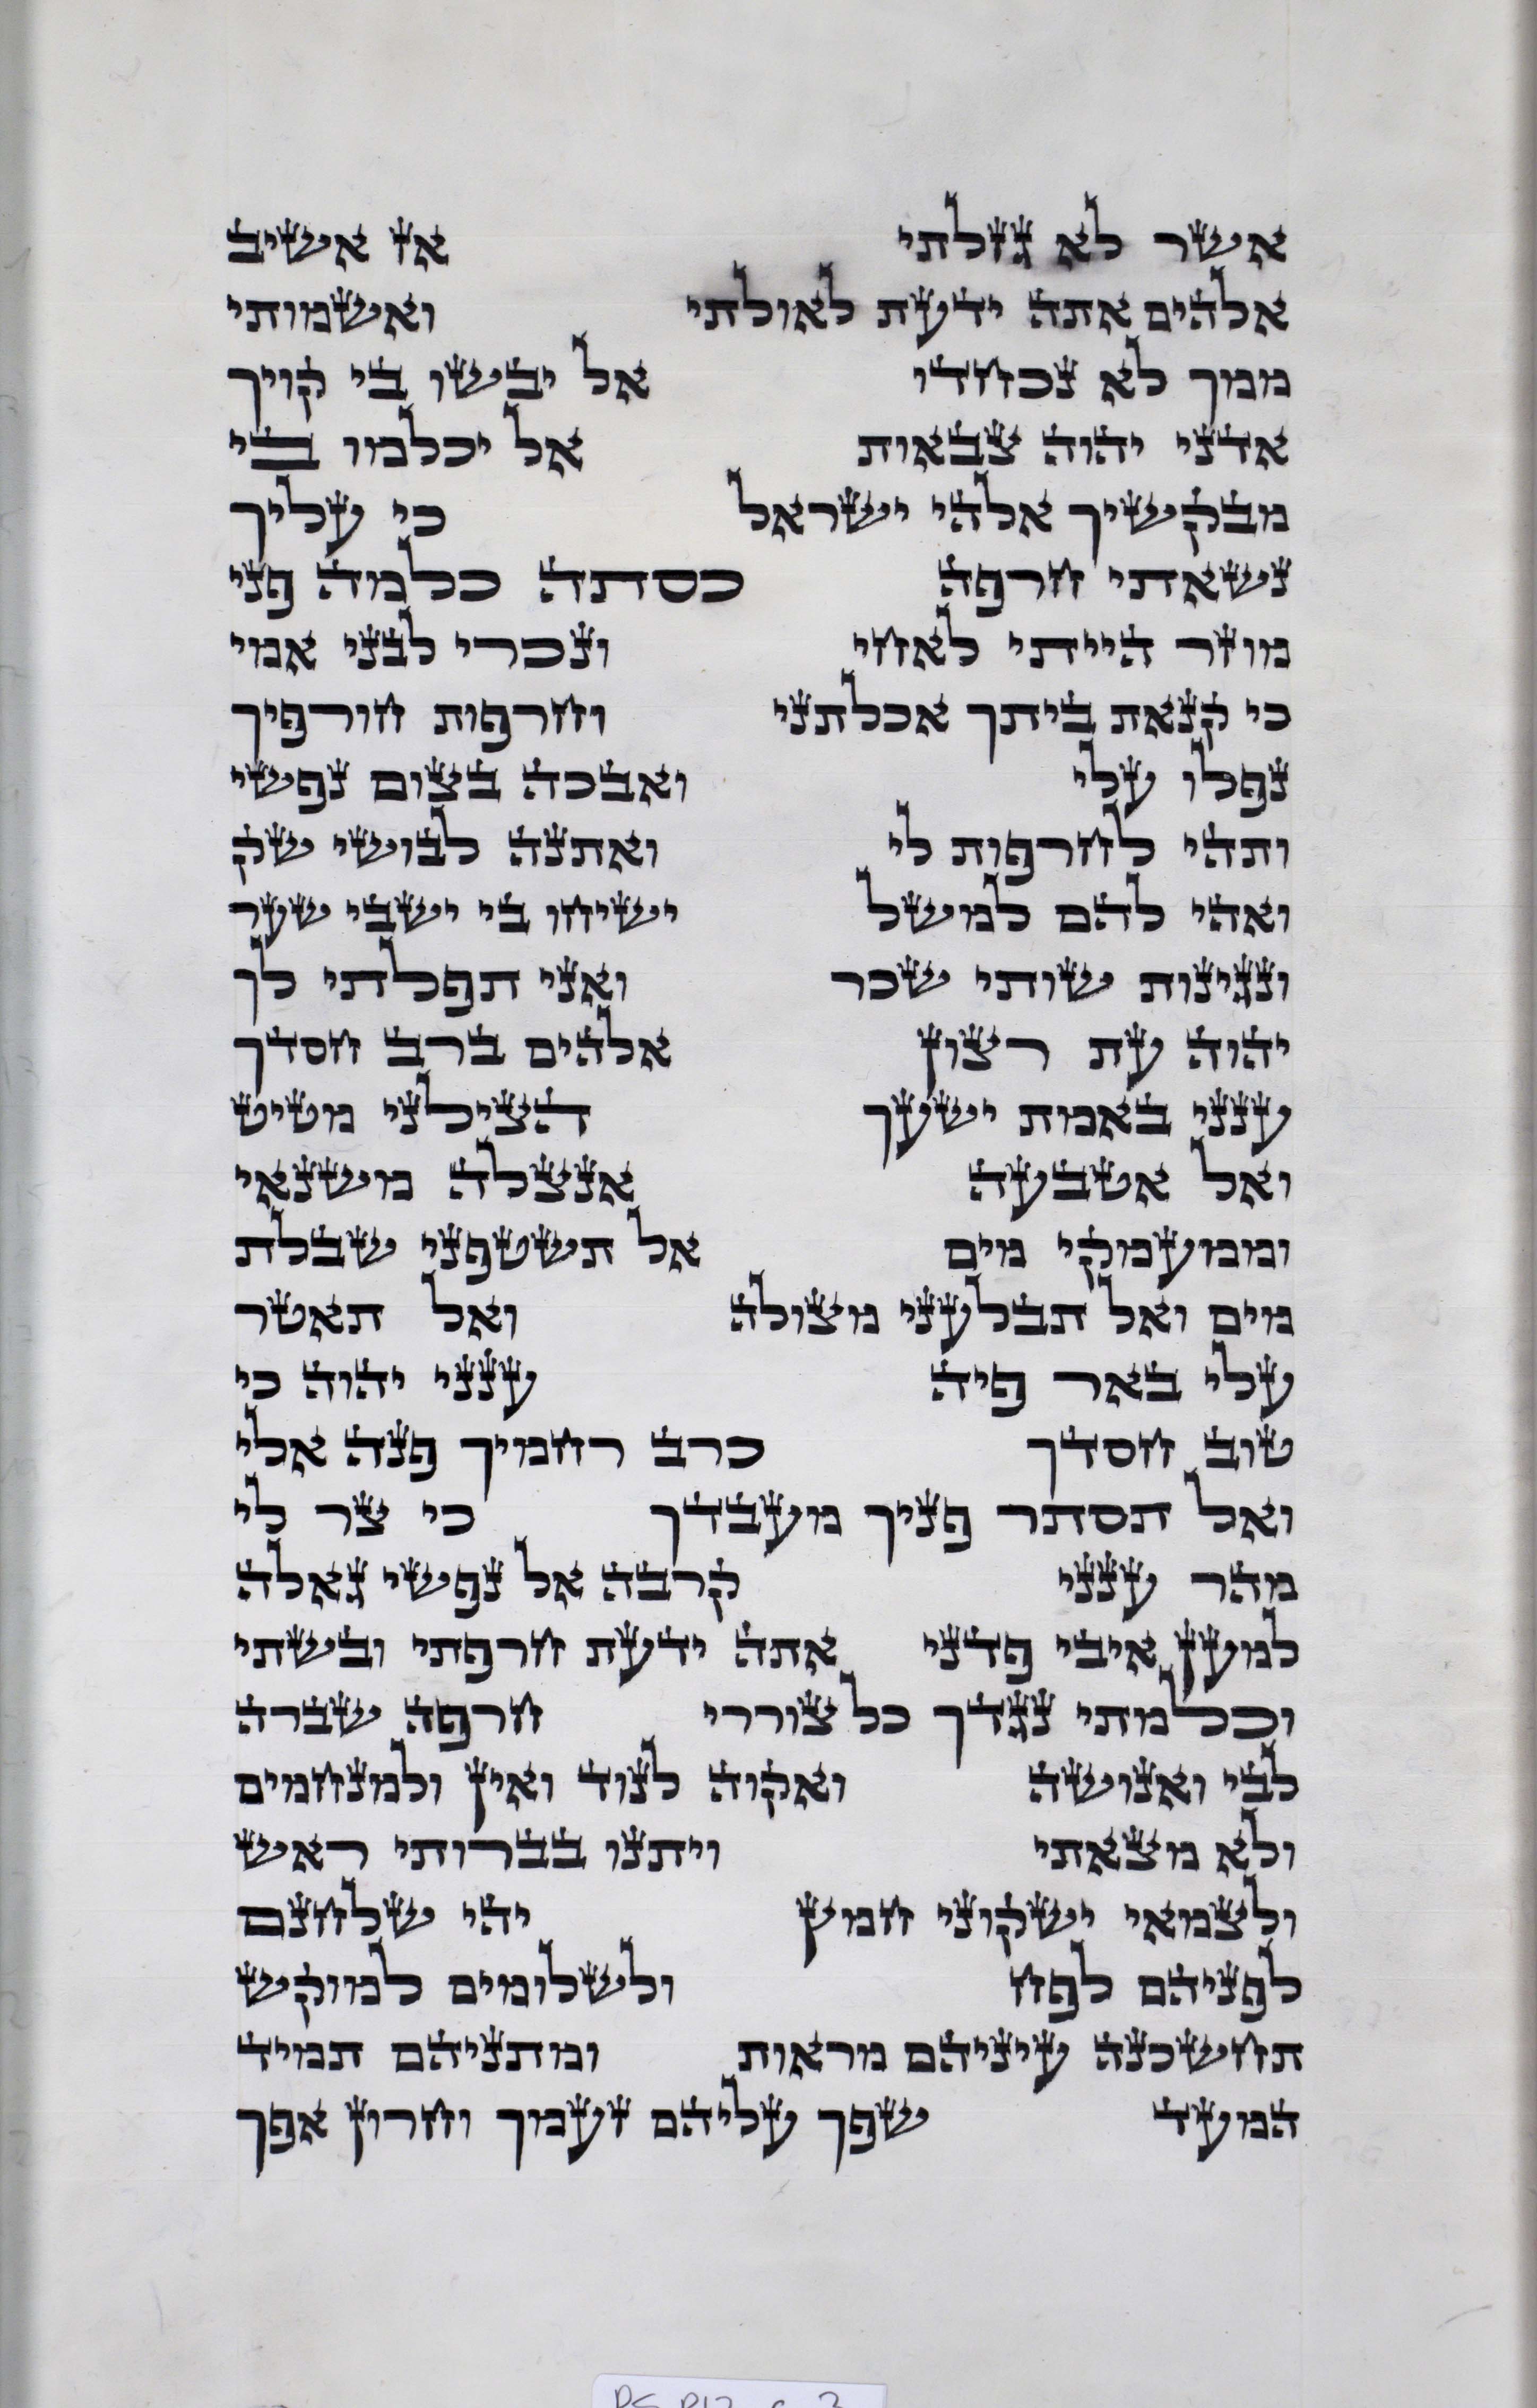 אשר לא גזלתי אז אשיב
אלהים אתה ידעת לאולתי ואשמותי
ממך לא נכחדו אל יבשו בי קויך
אדני יהוה צבאות אל יכלמו בי
מבקשיך אלהי ישראל כי עליך
נשאתי חרפה כסתה כלמה פני
מוזר הייתי לאחי ונכרי לבני אמי
כי קנאת ביתך אכלתני וחרפות חורפיך
נפלו עלי ואבכה בצום נפשי
ותהי לחרפות לי ואתנה לבושי שק
ואהי להם למשל ישיחו בי ישבי שער
ונגינות שותי שכר ואני תפלתי לך
יהוה עת רצון אלהים ברב חסדך
ענני באמת ישעך הצילני מטיט
ואל אטבעה אנצלה משנאי
וממעמקי מים אל תשטפני שבלת
מים ואל תבלעני מצולה ואל תאטר
עלי באר פיה ענני יהוה כי
טוב חסדך כרב רחמיך פנה אלי
ואל תסתר פניך מעבדך כי צר לי
מהר ענני קרבה אל נפשי גאלה
למען איבי פדני אתה ידעת חרפתי ובשתי
וכלמתי נגדך כל צוררי חרפה שברה
לבי ואנושה ואקוה לנוד ואין ולמנחמים
ולא מצאתי ויתנו בברותי ראש
ולצמאי ישקוני חמץ יהי שלחנם
לפניהם לפח ולשלומים למוקש
תחשכנה עיניהם מראות ומתניהם תמיד
המעד שפך עליהם זעמך וחרון אפך